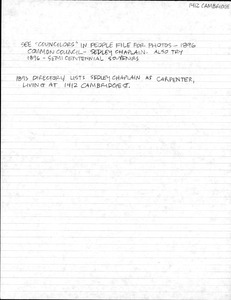 1912 CAMBRIDGE
SEE "COUNCILORS" IN PEOPLE FILE FOR PHOTOS - 1896
COMMON COUNCIL - SEDLEY CHAPLAIN. ALSO TRY
1896 - SEMI CENTENNIAL
DIRECTORY LISTS SEDLEY CHAPLAIN AS CARPENTER,
LIVING AT 1912 CAMBRIDGE